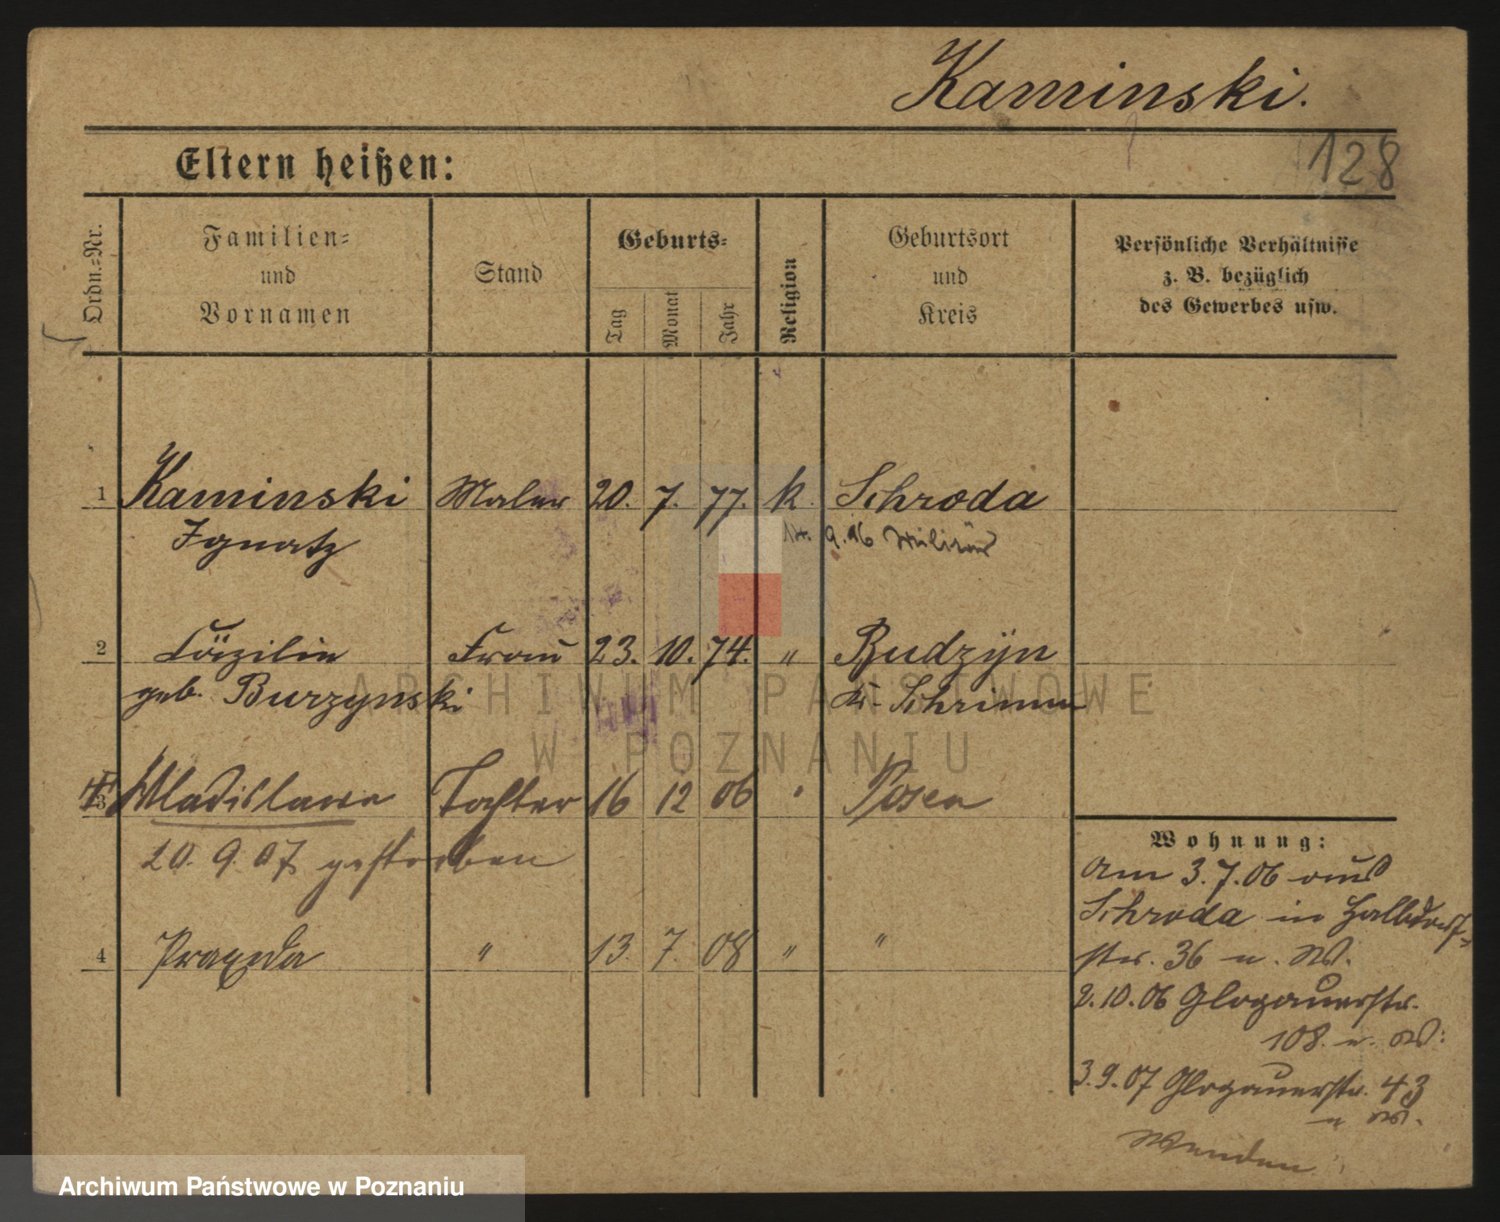 Kaminski.
128
Eltern heißen:
Ordn.-Nr.
Familien-
und
Vornamen
Stand
Geburts-
Tag
Monat
Jahr
Religion
Geburtsort
und
Kreis
Persönliche Verhältnisse
z. B. bezüglich
des Gewerbes usw.
1 Kaminski Maler 20. 7. 77. k. Schroda
Ignatz
9.96 Militär
2 Cäzilie Frau 23. 10. 74. " Budzyn
geb. Burzynski Kr. Schrimm
3 Wladislawa Tochter 16 12 06 " Posen
20. 9. 07 gestorben
4 Praxeda " 13. 7. 08 " "
Wohnung:
am 3.7.06 aus
Schroda in Halbdorf-
str. 36 u. W.
2.10.06 Glogauerstr.
108. u. W.
3.9.07 Glogauerstr. 43
u W.
Wenden!
ARCHIWUM PAŃSTWOWE
W POZNANIU
Archiwum Państwowe w Poznaniu